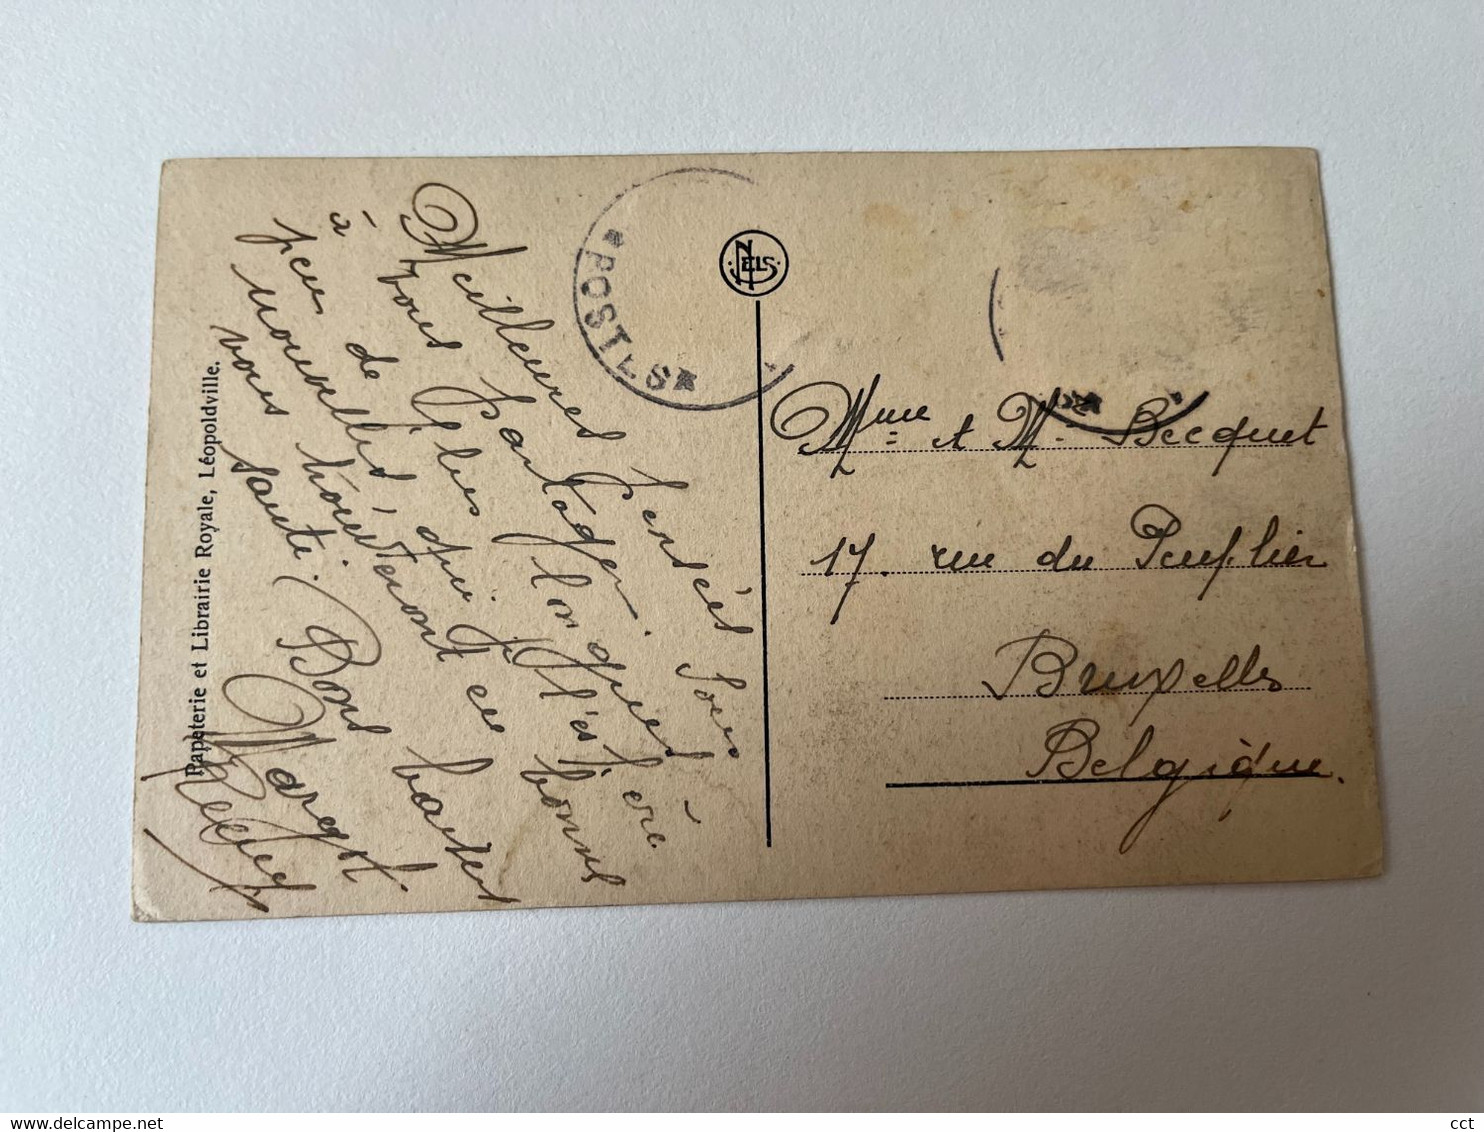 Papeterie et Librairie Royale, Léopoldville.
Meilleures Pensées pour
vous Partager.
à longues
peu de
nouvelles, qui j'espère
vous trouveront en bonne
santé. Bons baisers
Margot
NELS
*POSTES*
Mme et Mr Becquet
17. rue du Peuplier
Bruxelles
Belgique.
cct